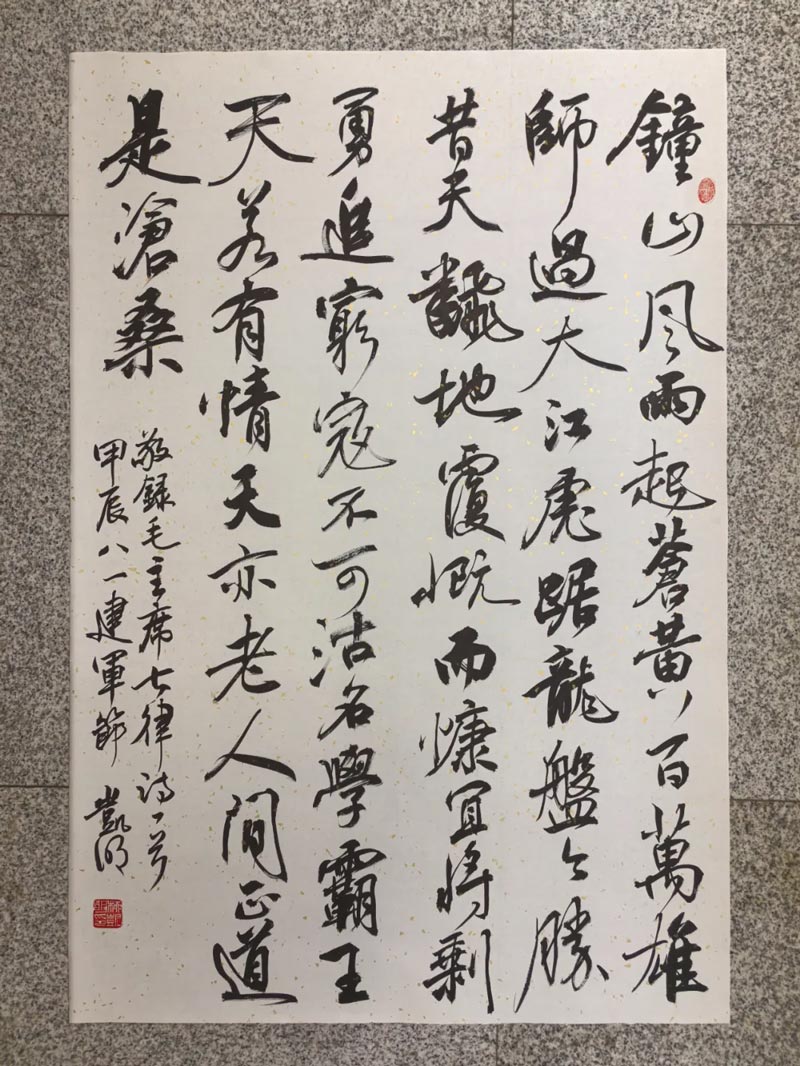 鐘山风雨起蒼黃百萬雄
師過大江虎踞龍盤今勝
昔天飜地覆慨而慷宜將剩
勇追窮寇不可沽名學霸王
天若有情天亦老人間正道
是滄桑
敬録毛主席七律诗一首
甲辰八一建軍節 凱明